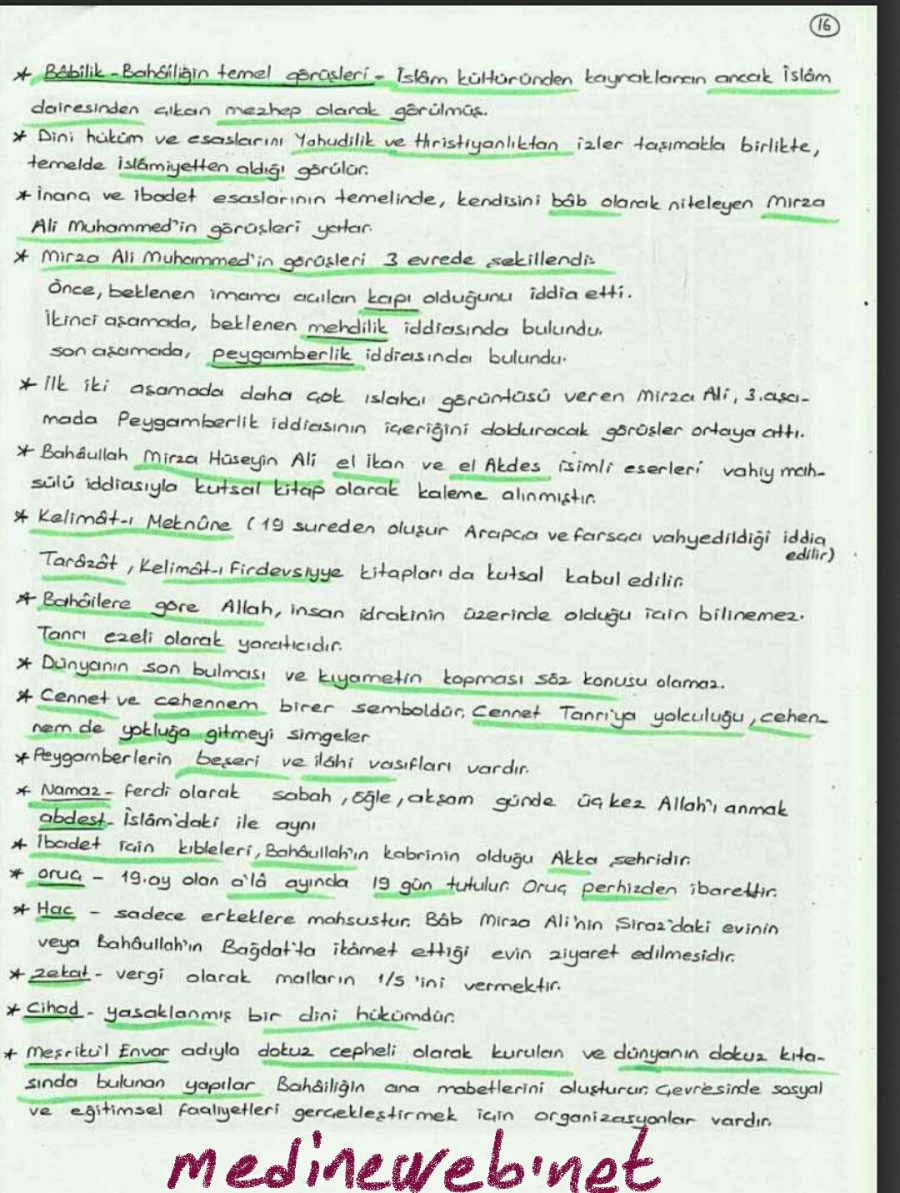 16
* Bâbîlik - Bahâiliğin temel görüşleri - İslâm kültüründen kaynaklanan ancak İslâm
dairesinden çıkan mezhep olarak görülmüş.
* Dini hüküm ve esaslarını Yahudilik ve Hristiyanlıktan izler taşımakla birlikte,
temelde İslâmiyetten aldığı görülür.
* İnanç ve ibadet esaslarının temelinde, kendisini bâb olarak niteleyen Mirza
Ali Muhammed'in görüşleri yatar.
* Mirza Ali Muhammed'in görüşleri 3 evrede şekillendi:
Önce, beklenen imama açılan kapı olduğunu iddia etti.
İkinci aşamada, beklenen mehdilik iddiasında bulundu.
son aşamada, peygamberlik iddiasında bulundu.
* İlk iki aşamada daha çok ıslahcı görüntüsü veren Mirza Ali, 3.aşa-
mada Peygamberlik iddiasının içeriğini dolduracak görüşler ortaya attı.
* Bahâullah Mirza Hüseyin Ali el İkan ve el Akdes isimli eserleri vahiy mah-
sülü iddiasıyla kutsal kitap olarak kaleme alınmıştır.
* Kelimât-ı Meknûne (19 sureden oluşur Arapça ve farsça vahyedildiği iddia
edilir)
Tarâzât, Kelimât-ı Firdevsiyye kitapları da kutsal kabul edilir.
* Bahâîlere göre Allah, insan idrakinin üzerinde olduğu için bilinemez.
Tanrı ezeli olarak yaratıcıdır.
* Dünyanın son bulması ve kıyametin kopması söz konusu olamaz.
* Cennet ve cehennem birer semboldür. Cennet Tanrı'ya yolculuğu, cehen-
nem de yokluğa gitmeyi simgeler
* Peygamberlerin beşeri ve ilâhi vasıfları vardır.
* Namaz - ferdi olarak sabah, öğle, akşam günde üç kez Allah'ı anmak
abdest - İslâm'daki ile aynı
* İbadet için kıbleleri, Bahâullah'ın kabrinin olduğu Akka şehridir.
* oruç - 19.ay olan a'lâ ayında 19 gün tutulur. Oruç perhizden ibarettir.
* Hac - sadece erkeklere mahsustur. Bâb Mirza Ali'nin Şiraz'daki evinin
veya Bahâullah'ın Bağdat'ta ikâmet ettiği evin ziyaret edilmesidir.
* zekat - vergi olarak malların 1/5 'ini vermektir.
* Cihad - yasaklanmış bir dini hükümdür.
* Meşriku'l Envar adıyla dokuz cepheli olarak kurulan ve dünyanın dokuz kıta-
sında bulunan yapılar Bahâiliğin ana mabetlerini oluşturur. Çevresinde sosyal
ve eğitimsel faaliyetleri gerçekleştirmek için organizasyonlar vardır.
medineweb.net